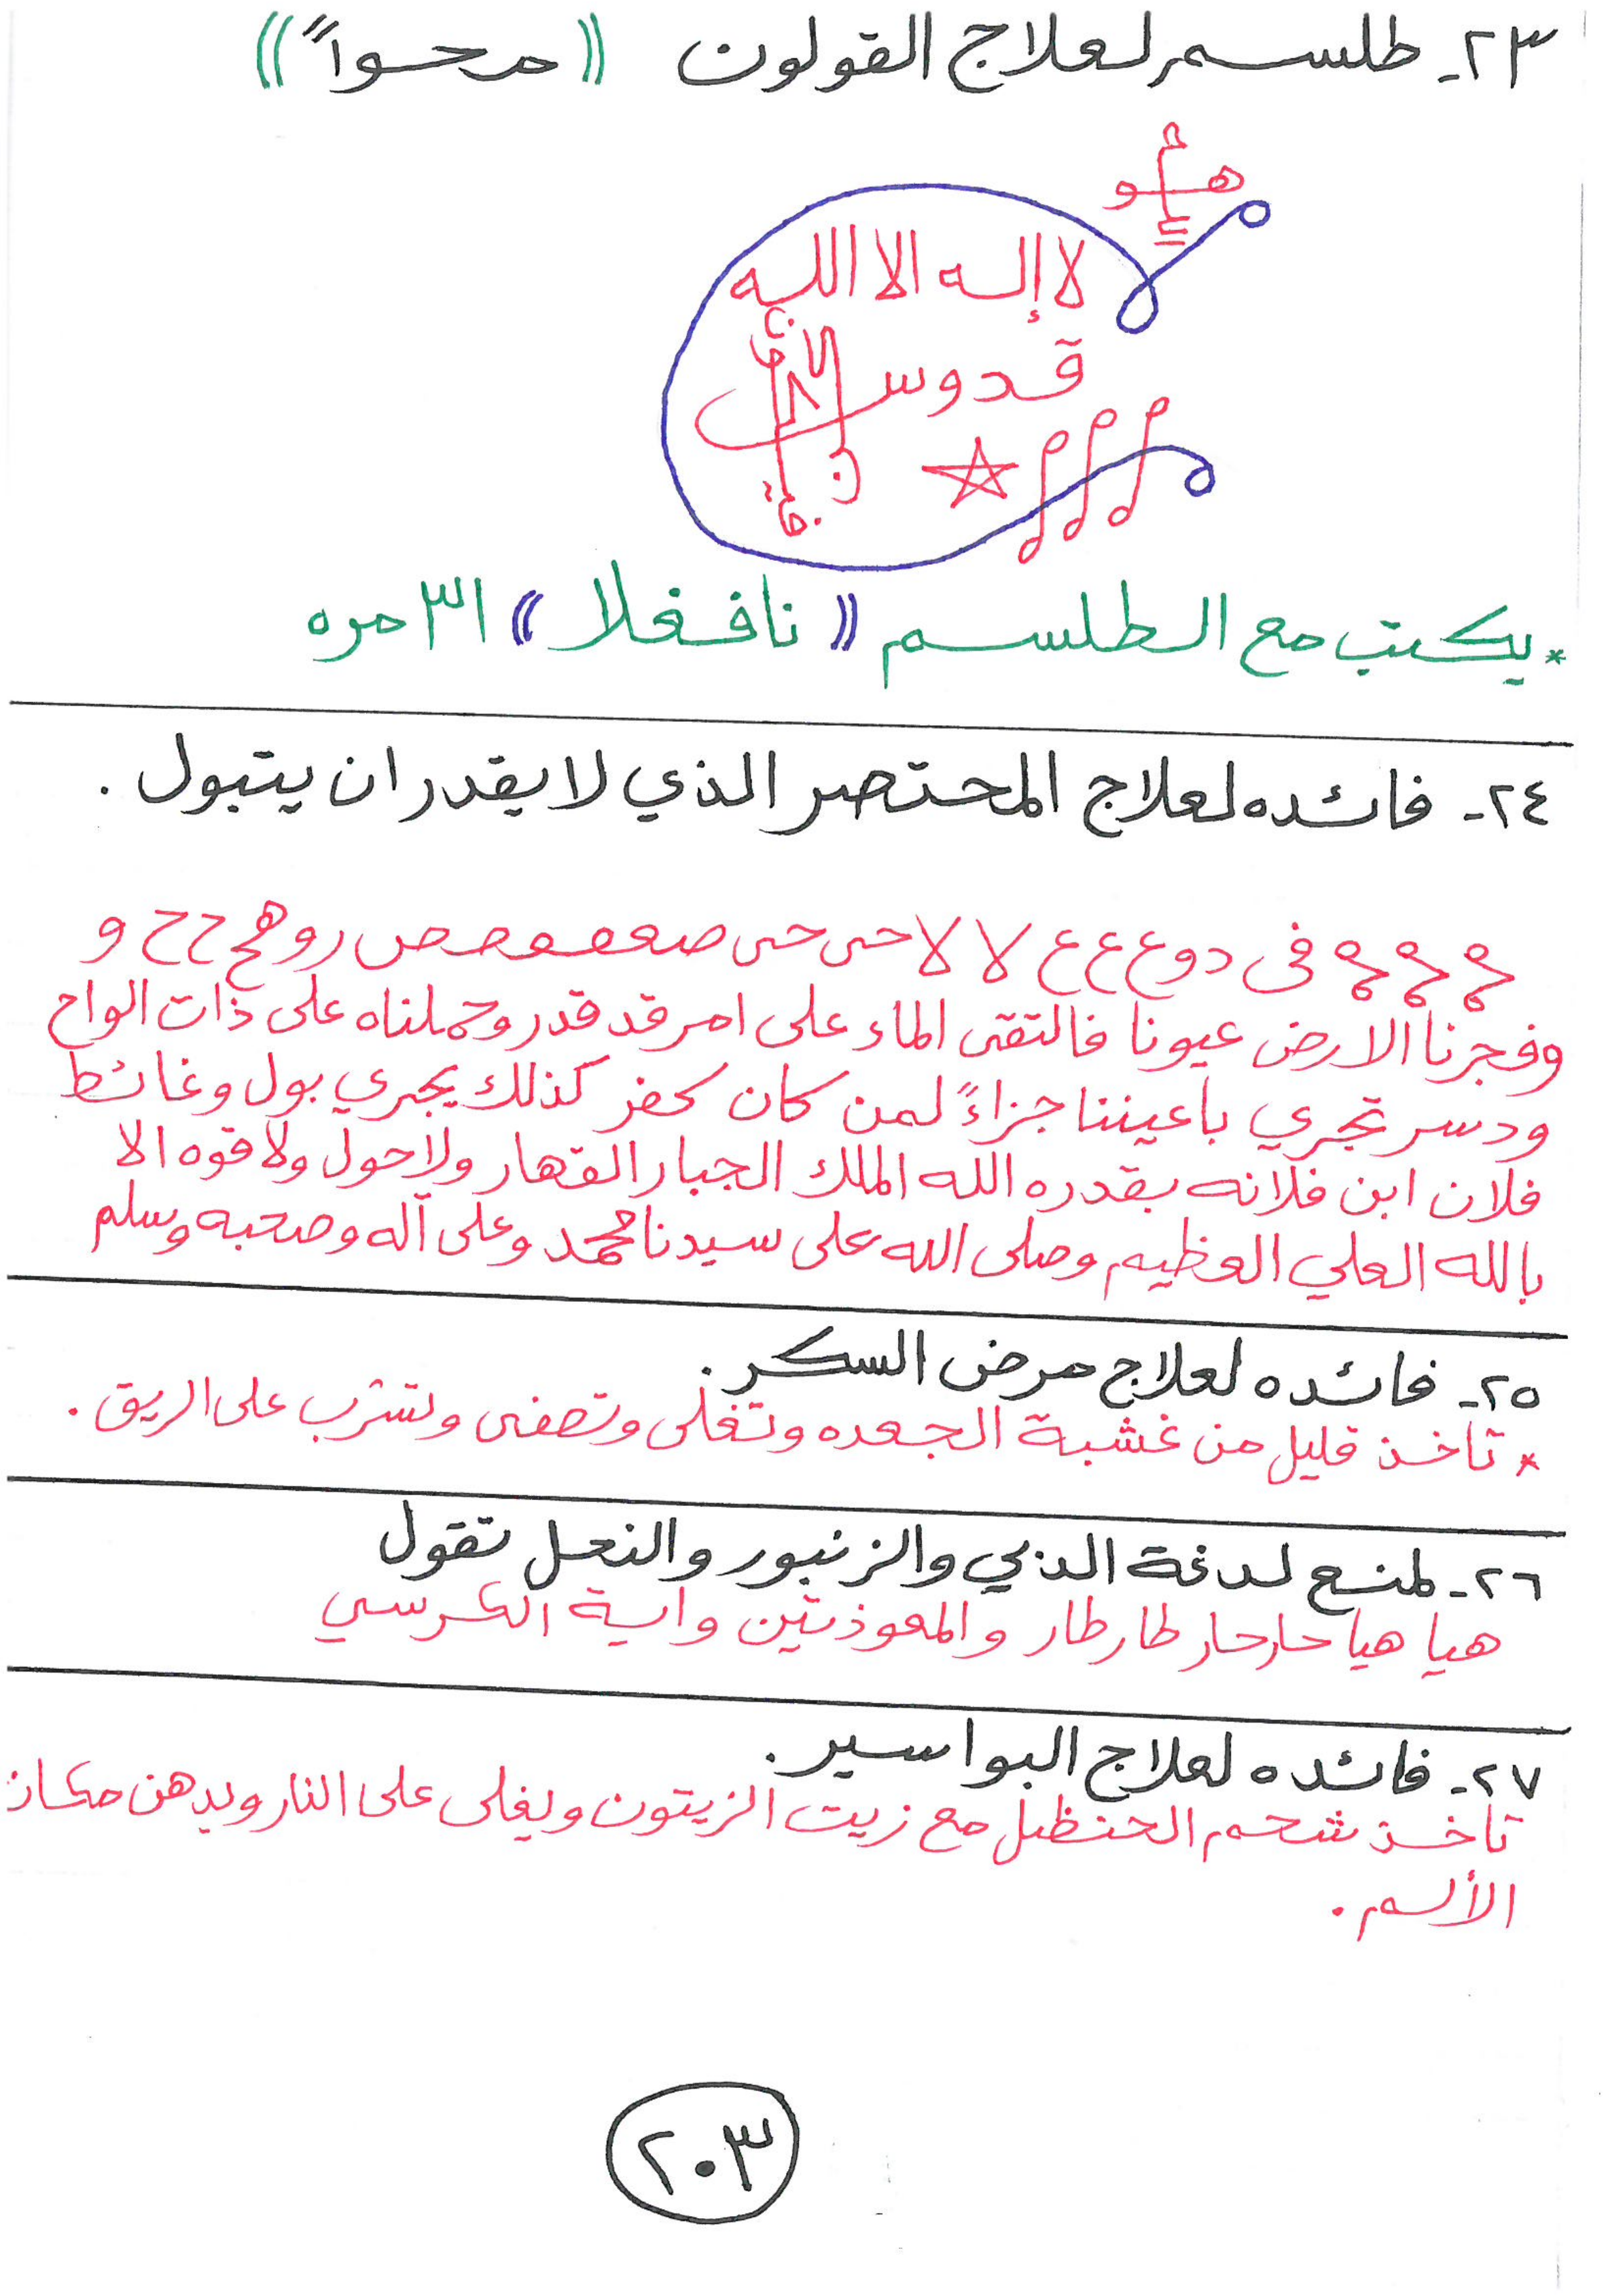 ٢٣- طلسم لعلاج القولون (( محواً ))
هو
لا إله الا الله
قدوس
* يكتب مع الطلسم (( نافغلا )) ٣١ مره
٢٤- فائده لعلاج المحتصر الذي لا يقدر ان يتبول .
فى دوع ع ع لا لا حى حى روهج ح ح و
وفجرنا الارض عيونا فالتقى الماء على امر قد قدر وحملناه على ذات الواح
ودسر تجري باعيننا جزاءً لمن كان كفر كذلك يجري بول وغائط
فلان ابن فلانه بقدره الله الملك الجبار القهار ولا حول ولا قوه الا
بالله العلي العظيم وصلى الله على سيدنا محمد وعلى آله وصحبه وسلم
٢٥- فائده لعلاج مرض السكر .
* تاخذ قليل من غشبة الجعده وتغلى وتصفى وتشرب على الريق .
٢٦- لمنع لدغة الدبي والزنبور والنحل تقول
هيا هيا حار حار طار طار والمعوذتين واية الكرسي
٢٧- فائده لعلاج البواسير .
تاخذ شحم الحنظل مع زيت الزيتون ويغلى على النار ويدهن مكان
الألم .
٢٠٣